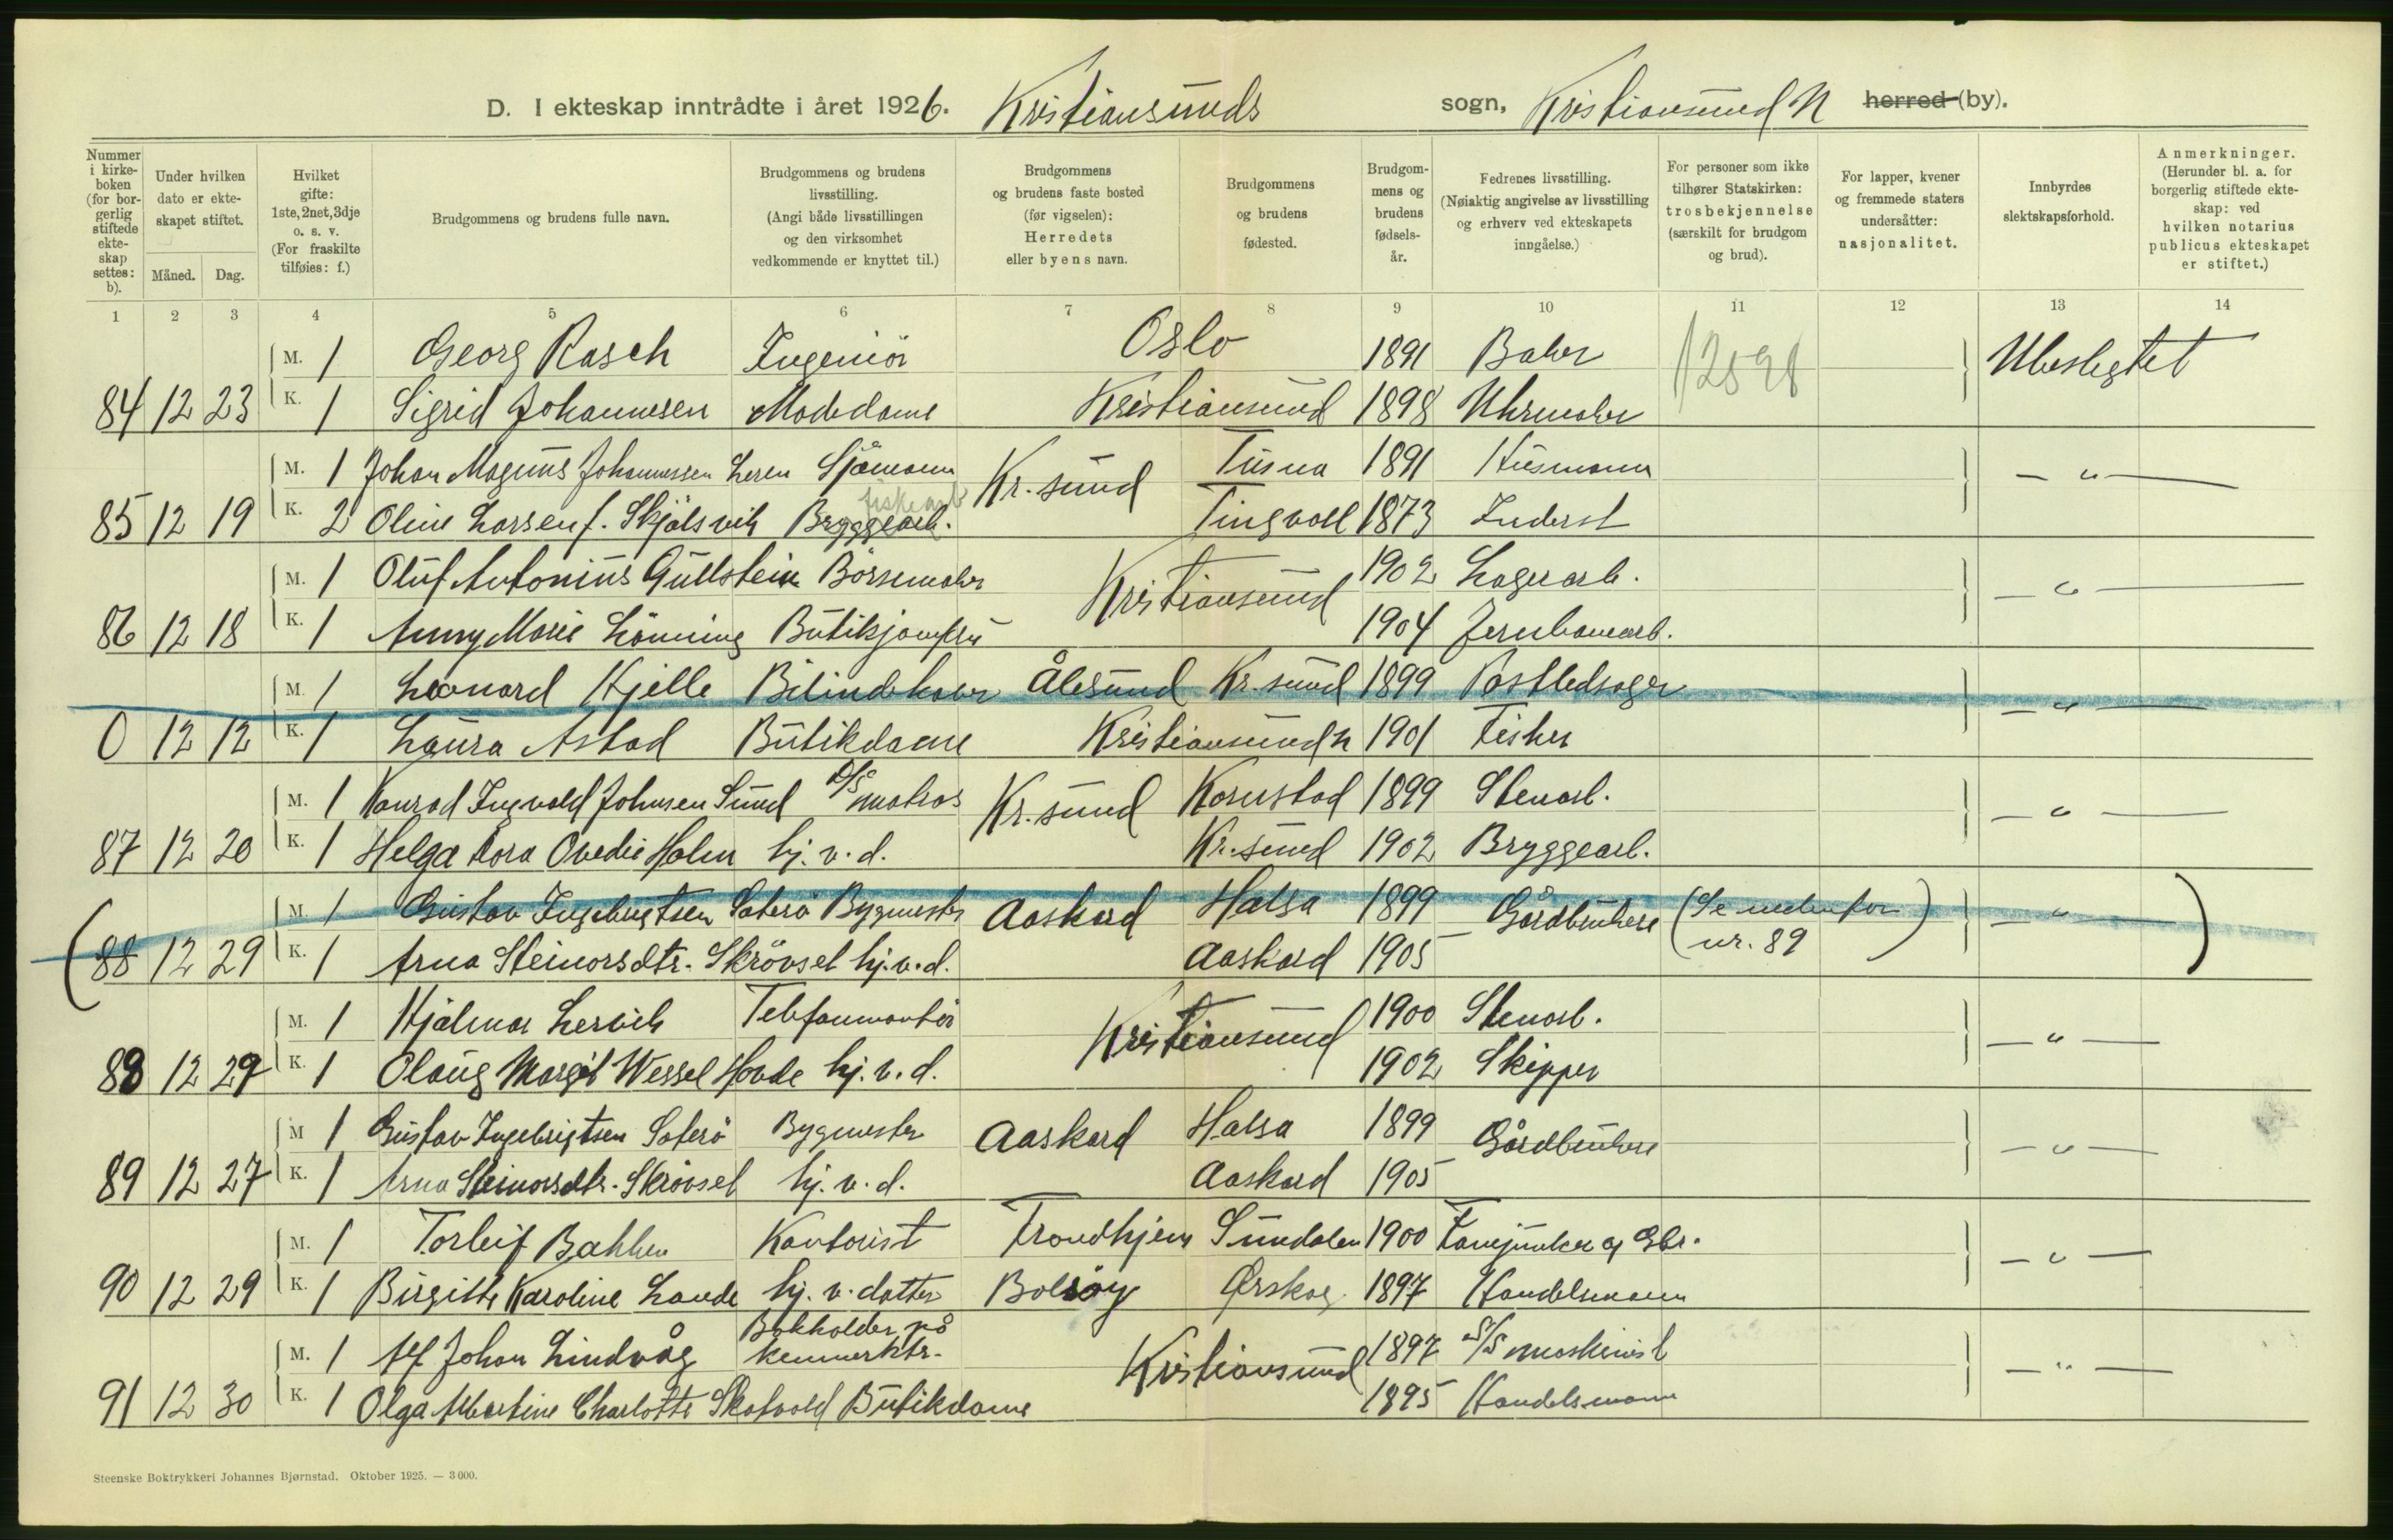 D. I ekteskap inntrådte i året 1926. Kristiansunds sogn, Kristiansund N herred (by).
Nummer i kirkeboken (for borgerlig stiftede ekteskap settes: b).
Under hvilken dato er ekteskapet stiftet.
Måned. Dag.
Hvilket gifte: 1ste, 2net, 3dje o. s. v. (For fraskilte tilføies: f.)
Brudgommens og brudens fulle navn.
Brudgommens og brudens livsstilling. (Angi både livsstillingen og den virksomhet vedkommende er knyttet til.)
Brudgommens og brudens faste bosted (før vigselen): Herredets eller byens navn.
Brudgommens og brudens fødested.
Brudgommens og brudens fødselsår.
Fedrenes livsstilling. (Nøiaktig angivelse av livsstilling og erhverv ved ekteskapets inngåelse.)
For personer som ikke tilhører Statskirken: trosbekjennelse (særskilt for brudgom og brud).
For lapper, kvener og fremmede staters undersåtter: nasjonalitet.
Innbyrdes slektskapsforhold.
Anmerkninger. (Herunder bl. a. for borgerlig stiftede ekteskap: ved hvilken notarius publicus ekteskapet er stiftet.)
1 2 3 4 5 6 7 8 9 10 11 12 13 14
M. 1 Georg Rasch Ingeniör Oslo 1891 Baker Ubeslegtet
84 12 23 K. 1 Sigrid Johannesen Modedame Kristiansund 1898 Uhrmaker
12598
M. 1 Johan Magnus Johannessen Leren Sjömann Kr.sund Tusna 1891 Husmann — " —
fiskearb
85 12 19 K. 2 Oline Larsen f. Skjölsvik Bryggearb. Tingvoll 1873 Inderst
M. 1 Oluf Antonius Gullstein Börsemaker Kristiansund 1902 Lagerarb. — " —
86 12 18 K. 1 Anny Marie Lönning Butikjomfru 1904 Jernbanearb.
M. 1 Leonard Hjelle Bilindehaver Ålesund Kr.sund 1899 Postledsager — " —
0 12 12 K. 1 Laura Astad Butikdame Kristiansund N 1901 Fisker
M. 1 Konrad Ingvald Johnsen Sund D/S matros Kr.sund Kornstad 1899 Stenarb. — " —
87 12 20 K. 1 Helga Kora Ovedie Holm hj.v.d. Kr.sund 1902 Bryggearb.
M. 1 Gustav Ingebrigtsen Saterö Bygmester Aaskard Halsa 1899 Gårdbrukere (Se nedenfor nr. 89) — " —
(88 12 29 K. 1 Arna Steinarsdtr. Skrövset hj.v.d. Aaskard 1905 )
M. 1 Hjalmar Lervik Telefonmontör Kristiansund 1900 Stenarb. — " —
88 12 27 K. 1 Olaug Margit Wessel Hovde hj.v.d. 1902 Skipper
M 1 Gustav Ingebrigtsen Saterö Bygmester Aaskard Halsa 1899 Gårdbrukere — " —
89 12 27 K. 1 Arna Steinarsdtr. Skrövset hj.v.d. Aaskard 1905
M. 1 Torleif Bakken Kontorist Trondhjem Sundalen 1900 Fanejunker og Gbr. — " —
90 12 29 K. 1 Birgitte Karoline Lande hj.v.datter Bolsöy Ørskog 1897 Handelsmann
M. 1 Alf Johan Lindvåg Bokholder på kemnerktr. Kristiansund 1897 S/S maskinist — " —
91 12 30 K. 1 Olga Albertine Charlotte Skotvold Butikdame 1895 Handelsmann
Steenske Boktrykkeri Johannes Bjørnstad. Oktober 1925. — 3000.